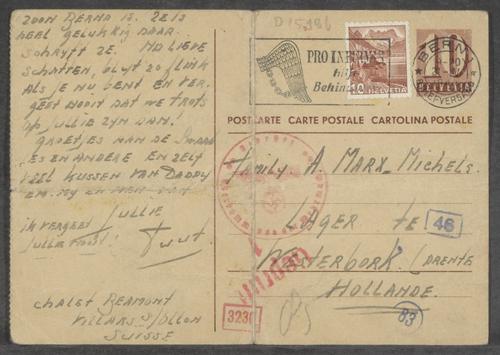 zoon Berna is. Zeis
heel gelukkig daar
schryft ze. Nd lieve
schatten, blyt zo flink
als je nu bent en ver-
geet nooit dat we trots
op jullie zyn dan!
groetjes van de
es en andere en zelf
veel kussen van Daddy
en my en
ik vergeet jullie
jullie nooit! Truut
Chalet Beamont
Villars s/Ollon
Suisse
D 15986
PRO INFIRMIS
hilf
Behin
10 HELVETIA
BERN 1
BRIEFVERSAND
10
HELVETIA
POSTKARTE CARTE POSTALE CARTOLINA POSTALE
Family. A. Marx-Michels.
Lager te
46
Westerbork. (Drente
Hollande.
83
Geprüft
3230